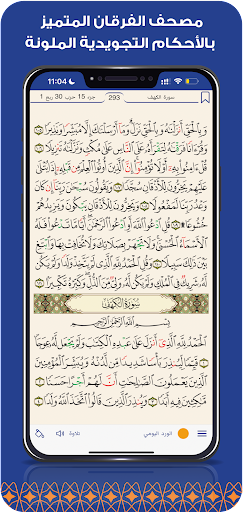 مصحف الفرقان المتميز
بالأحكام التجويدية الملونة
11:04
سورة الكهف 293 جزء 15 حزب 30 ربع 1
وَبِٱلۡحَقِّ أَنزَلۡنَٰهُ وَبِٱلۡحَقِّ نَزَلَۗ وَمَآ أَرۡسَلۡنَٰكَ إِلَّا مُبَشِّرٗا وَنَذِيرٗا ١٠٥
وَقُرۡءَانٗا فَرَقۡنَٰهُ لِتَقۡرَأَهُۥ عَلَى ٱلنَّاسِ عَلَىٰ مُكۡثٖ وَنَزَّلۡنَٰهُ تَنزِيلٗا ١٠٦
قُلۡ ءَامِنُواْ بِهِۦٓ أَوۡ لَا تُؤۡمِنُوٓاْۚ إِنَّ ٱلَّذِينَ أُوتُواْ ٱلۡعِلۡمَ مِن قَبۡلِهِۦٓ إِذَا يُتۡلَىٰ
عَلَيۡهِمۡ يَخِرُّونَۤ لِلۡأَذۡقَانِۤ سُجَّدٗا ١٠٧ وَيَقُولُونَ سُبۡحَٰنَ رَبِّنَآ إِن كَانَ
وَعۡدُ رَبِّنَا لَمَفۡعُولٗا ١٠٨ وَيَخِرُّونَ لِلۡأَذۡقَانِ يَبۡكُونَ وَيَزِيدُهُمۡ
خُشُوعٗا۩ ١٠٩ قُلِ ٱدۡعُواْ ٱللَّهَ أَوِ ٱدۡعُواْ ٱلرَّحۡمَٰنَۖ أَيّٗا مَّا تَدۡعُواْ فَلَهُ
ٱلۡأَسۡمَآءُ ٱلۡحُسۡنَىٰۚ وَلَا تَجۡهَرۡ بِصَلَاتِكَ وَلَا تُخَافِتۡ بِهَا وَٱبۡتَغِ
بَيۡنَ ذَٰلِكَ سَبِيلٗا ١١٠ وَقُلِ ٱلۡحَمۡدُ لِلَّهِ ٱلَّذِي لَمۡ يَتَّخِذۡ وَلَدٗا وَلَمۡ يَكُن
لَّهُۥ شَرِيكٞ فِي ٱلۡمُلۡكِ وَلَمۡ يَكُن لَّهُۥ وَلِيّٞ مِّنَ ٱلذُّلِّۖ وَكَبِّرۡهُ تَكۡبِيرَۢا ١١١
سُورَةُ الكَهۡفِ
بِسۡمِ ٱللَّهِ ٱلرَّحۡمَٰنِ ٱلرَّحِيمِ
ٱلۡحَمۡدُ لِلَّهِ ٱلَّذِيٓ أَنزَلَ عَلَىٰ عَبۡدِهِ ٱلۡكِتَٰبَ وَلَمۡ يَجۡعَل لَّهُۥ عِوَجَاۜ ١
قَيِّمٗا لِّيُنذِرَ بَأۡسٗا شَدِيدٗا مِّن لَّدُنۡهُ وَيُبَشِّرَ ٱلۡمُؤۡمِنِينَ
ٱلَّذِينَ يَعۡمَلُونَ ٱلصَّٰلِحَٰتِ أَنَّ لَهُمۡ أَجۡرًا حَسَنٗا ٢
مَّٰكِثِينَ فِيهِ أَبَدٗا ٣ وَيُنذِرَ ٱلَّذِينَ قَالُواْ ٱتَّخَذَ ٱللَّهُ وَلَدٗا ٤
الورد اليومي تلاوة